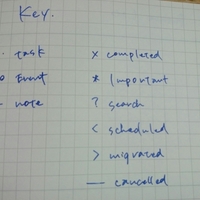 Key.
· task × completed
o Event * Important
- note ? search
< scheduled
> migrated
— cancelled